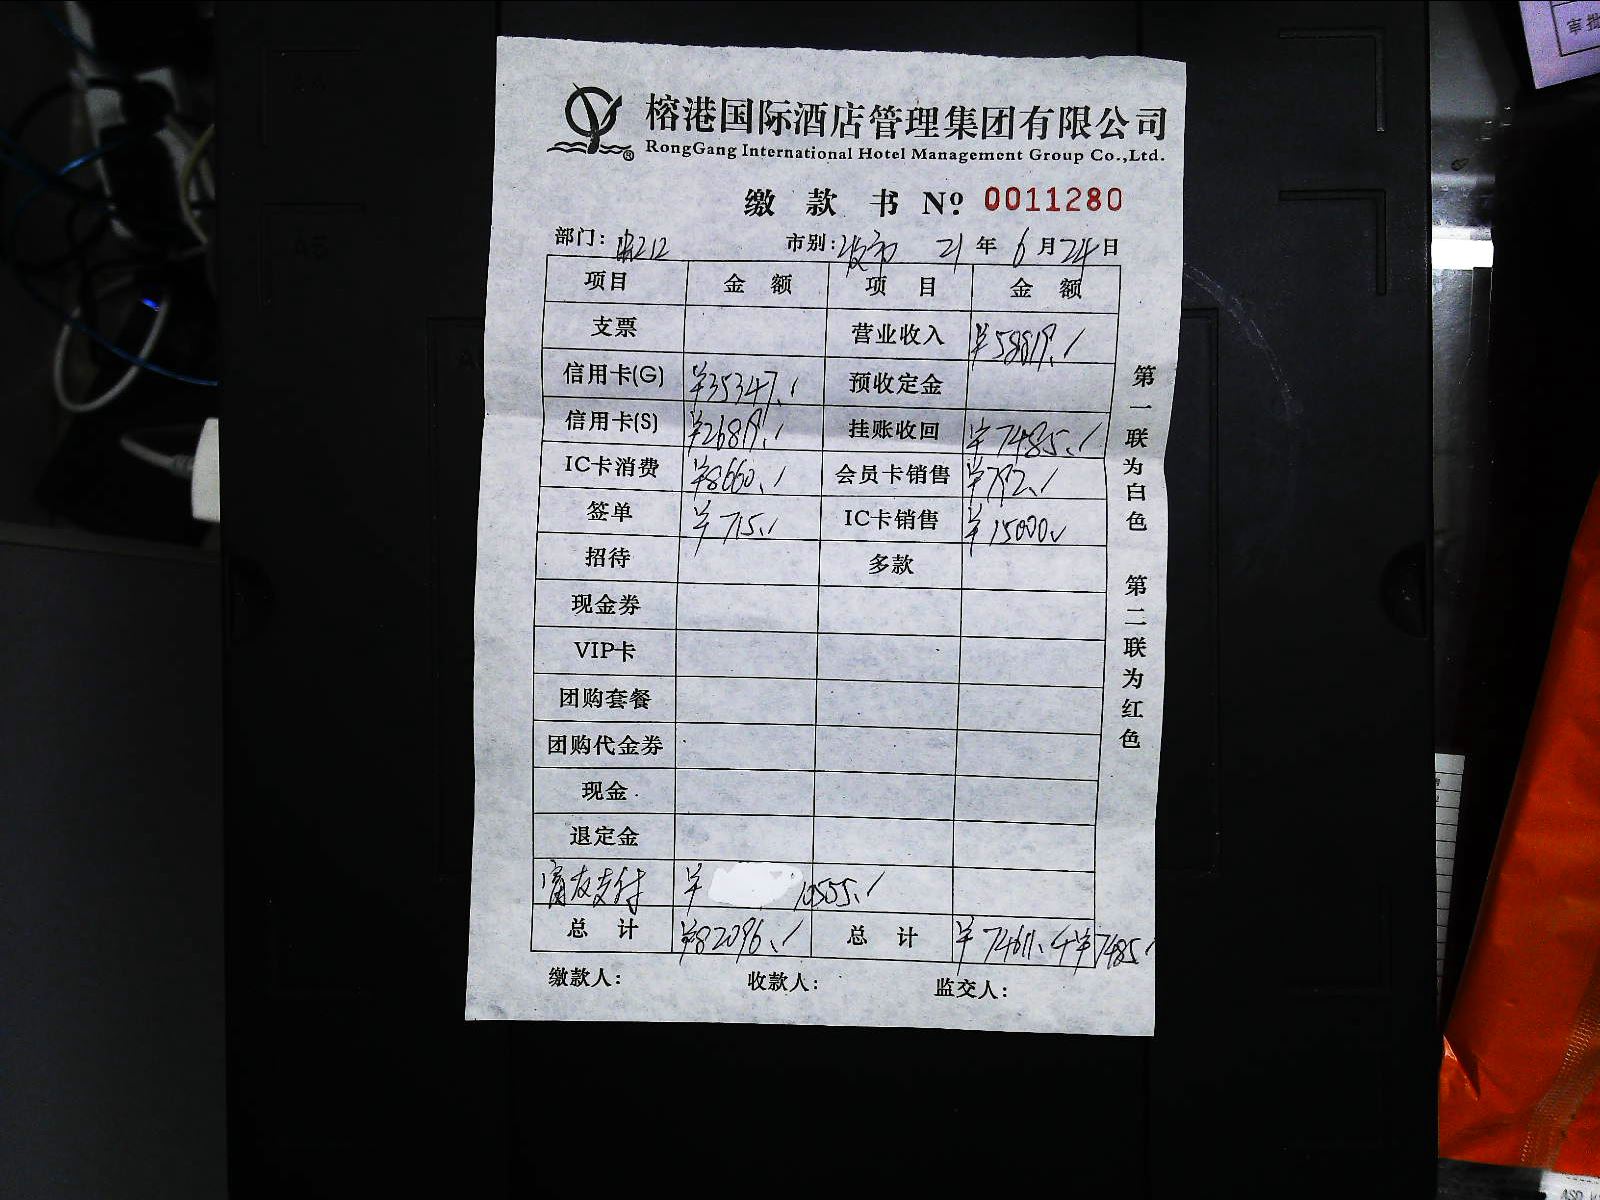 榕港国际酒店管理集团有限公司
RongGang International Hotel Management Group Co.,Ltd.
缴款书 Nº 0011280
部门: 212 市别:夜市 21年6月24日
项目 金额 项目 金额
支票 营业收入 ¥58819.✓
信用卡(G) ¥35347.✓ 预收定金
信用卡(S) ¥26819.✓ 挂账收回 ¥7485.✓
IC卡消费 ¥8660.✓ 会员卡销售 ¥792.✓
签单 ¥715.✓ IC卡销售 ¥15000.✓
招待 多款
现金券
VIP卡
团购套餐
团购代金券
现金
退定金
富友支付 ¥ 10555.✓
总计 ¥82096.✓ 总计 ¥74611.+¥7485.✓
缴款人: 收款人: 监交人:
第一联为白色 第二联为红色
审批